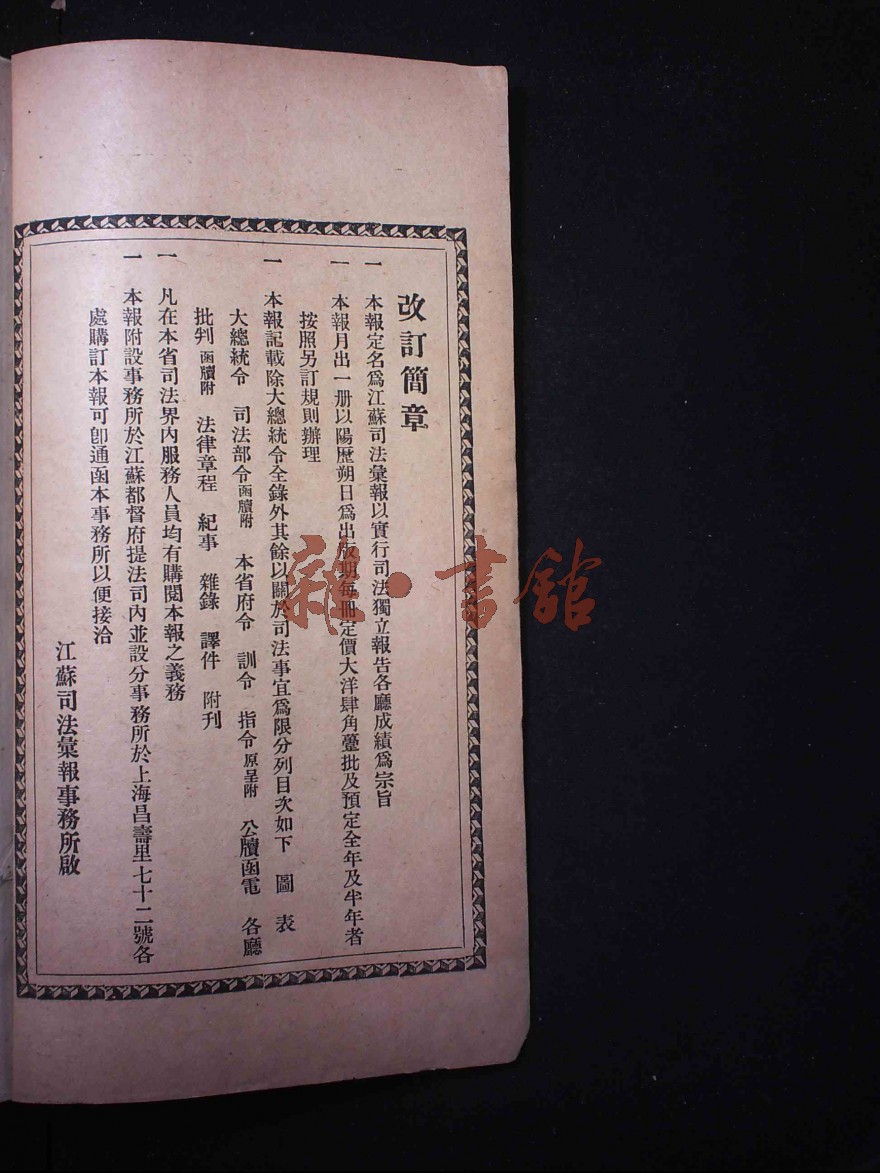 改訂簡章
一 本報定名爲江蘇司法彙報以實行司法獨立報告各廳成績爲宗旨
一 本報月出一册以陽歷朔日爲出版期每冊定價大洋肆角躉批及預定全年及半年者
按照另訂規則辦理
一 本報記載除大總統令全錄外其餘以關於司法事宜爲限分列目次如下 圖 表
大總統令 司法部令函牘附 本省府令 訓令 指令原呈附 公牘函電 各廳
批判函牘附 法律章程 紀事 雜錄 譯件 附刊
一 凡在本省司法界內服務人員均有購閱本報之義務
一 本報附設事務所於江蘇都督府提法司內並設分事務所於上海昌壽里七十二號各
處購訂本報可卽通函本事務所以便接洽
江蘇司法彙報事務所啟
雜·書館